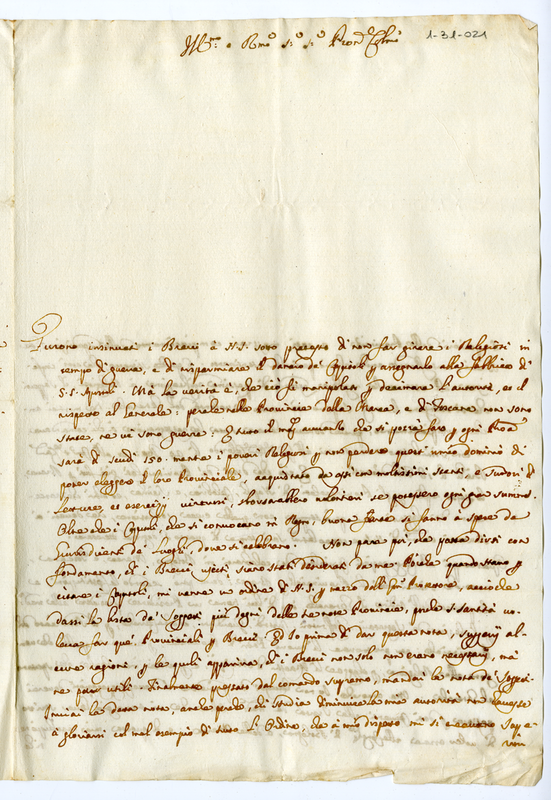 Ill.mo e R.mo S.r S.r Pron Col.mo
1-31-021
Furono insinuati i Brevi à N.S. sotto pretesto di non far girare i Religiosi in
tempo di guerra, e di risparmiare il danaro de' Capitoli p assegnarlo alla fabbrica di
S.S. Apostoli. Mà la verità è, che ciò fù manipolato p decimare l'autorità, et il
rispetto al Generale: perche nelle Provincie della Marca, e di Toscana non sono
state, ne vè sono guerre: E tutto il mag.r aumento che si potea fare p ogni Proa
sarà di scudi 150. mentre i poveri Religiosi p non perdere quest' unico dominio di
poter eleggere il loro Provinciale, acquistato da essi con moltissimi stenti, e sudori di
Letture, et esercizij virtuosi, sborsarebbero volontieri se potessero ogni gran summa.
Oltre che i Capitoli, che si convocano in Regno, buona parte si fanno à spese de
Giurisdicenti de Luoghi, dove si celebrano. Non pare poi, che possa dirsi con
fondamento, che i Brevi usciti siano stati desiderati da me. Poiche quando stavo p
citare i Capitoli, mi venne un ordine di N.S. p mezzo dell' Protettore, acciò che
dassi la lista de' Soggetti più degni delle tre note Provincie, perche S. Santità vo-
leva far quei Provinciali p Breve. Io prima di dar questa nota, suggerij al-
cune ragioni, p le quali appariva, che i Brevi non solo non erano necessarij, mà
ne pure utili. Finalmente pressato dal comando supremo, mandai la nota de' Soggetti.
Inviai la detta nota, anche perche, chi studia diminuire la mia autorità non havesse
à gloriarsi col mal esempio di tutto l'Ordine, che à mio dispetto mi si erano Sope-
riori